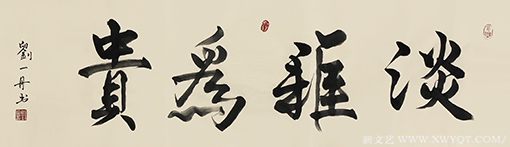 淡雅為貴
劉一丹書
新文艺 www.xwyqt.com